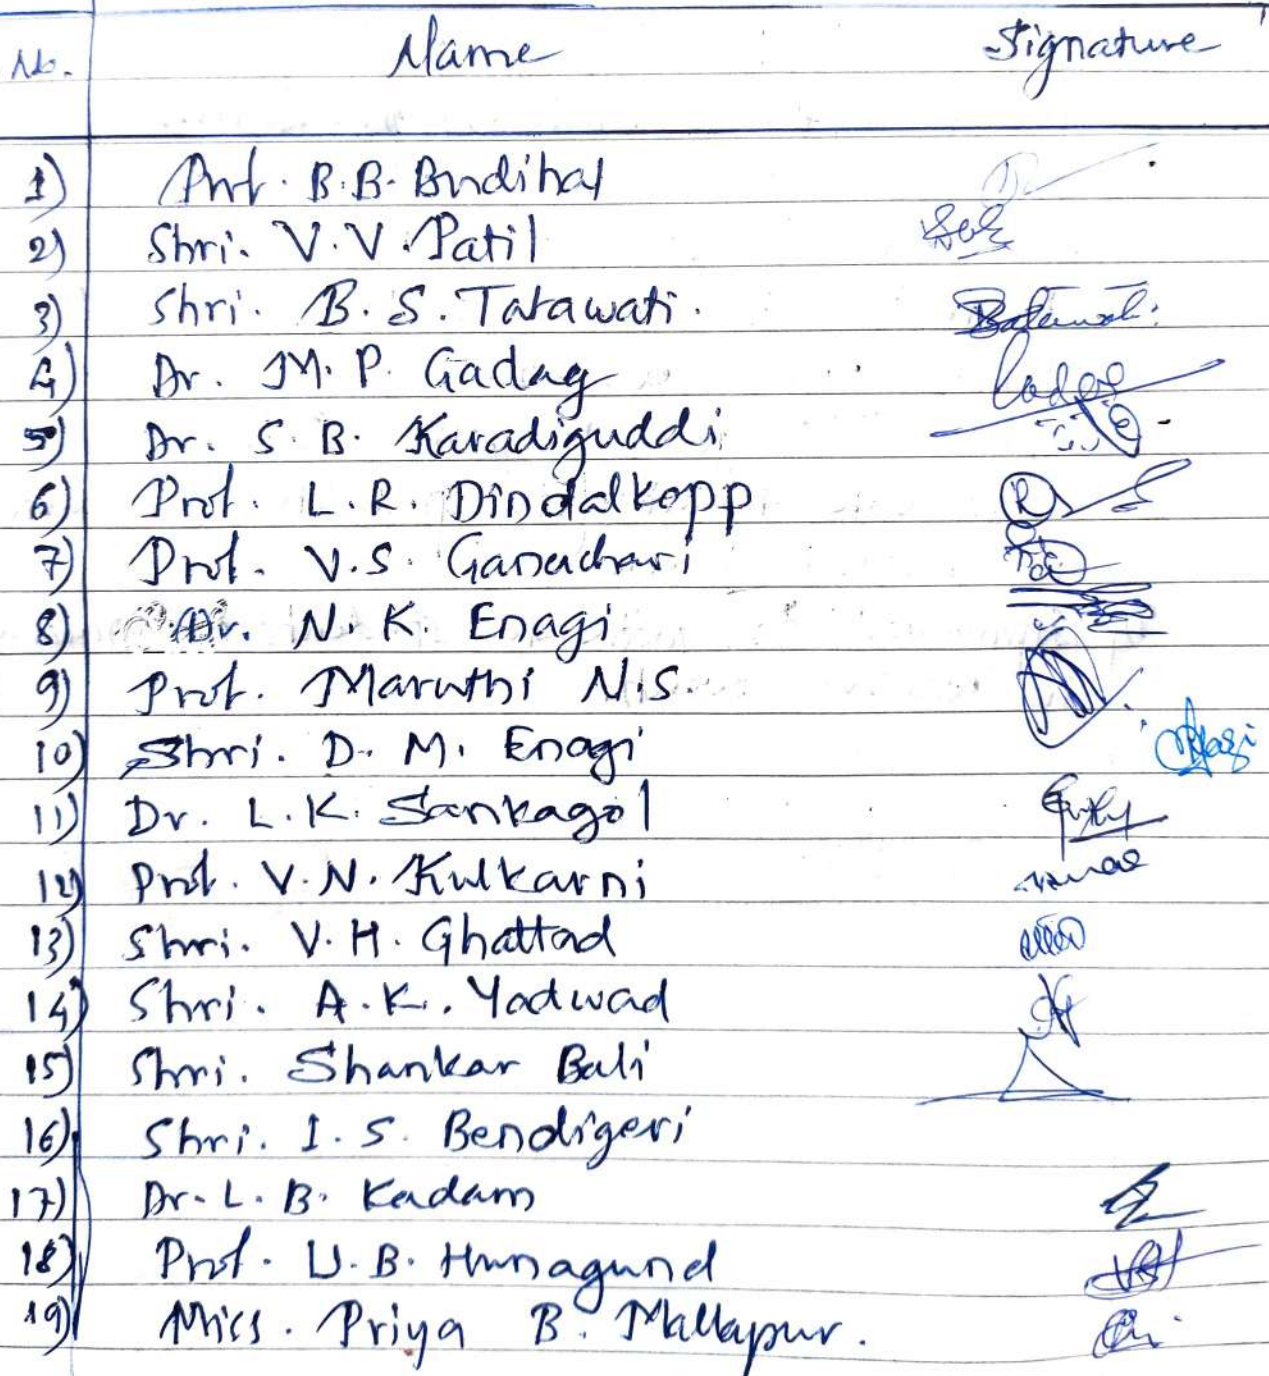 No. Name Signature
1) Prof. B.B. Budihal
2) Shri. V.V. Patil
3) Shri. B.S. Tatawati.
4) Dr. M.P. Gadag
5) Dr. S.B. Karadiguddi
6) Prof. L.R. Dindalkopp
7) Prof. V.S. Ganachari
8) Dr. N.K. Enagi
9) Prof. Maruthi N.S.
10) Shri. D.M. Enagi
11) Dr. L.K. Sankagol
12) Prof. V.N. Kulkarni
13) Shri. V.H. Ghattad
14) Shri. A.K. Yadwad
15) Shri. Shankar Bali
16) Shri. I.S. Bendigeri
17) Dr. L.B. Kadam
18) Prof. U.B. Hunagund
19) Miss. Priya B. Mallapur.